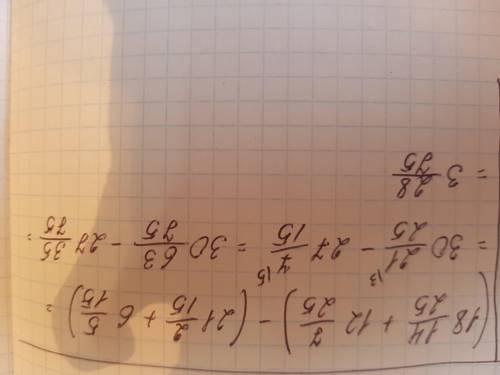 (18 14/25 + 12 7/25) - (21 2/15 + 6 5/15) =
= 30 21/25 \3 - 27 7/15 \5 = 30 63/75 - 27 35/75 =
= 3 28/75